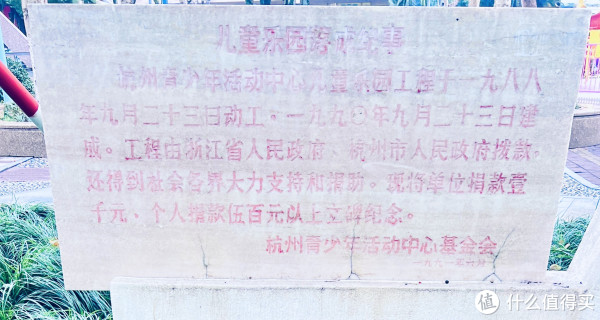 儿童乐园
杭州青少年活动中心儿童乐园工程于一九八八
年九月二十三日动工。一九九〇年九月二十三日建
成。工程由浙江省人民政府、杭州市人民政府拨款，
还得到社会各界大力支持和捐助。现将单位捐款壹
千元、个人捐款伍百元以上立碑纪念。
杭州青少年活动中心基金会
值 什么值得买